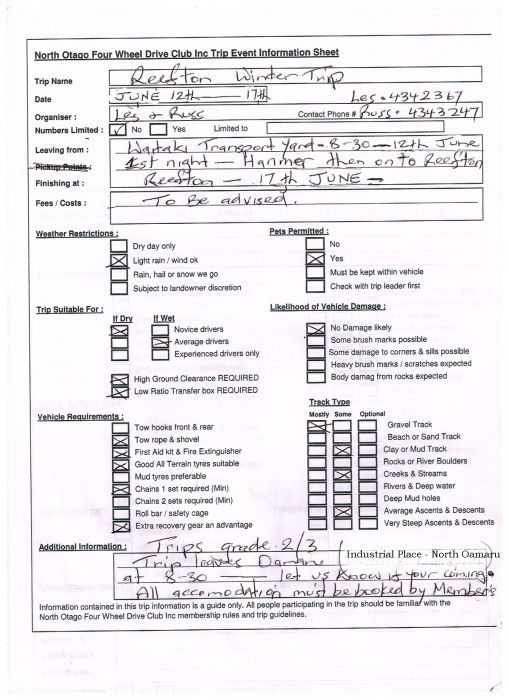 North Otago Four Wheel Drive Club Inc Trip Event Information Sheet
Trip Name Reefton Winter Trip
Date JUNE 12th — 17th Les • 4342367
Organiser : Les & Russ Contact Phone # Russ • 4343247
Numbers Limited : No Yes Limited to
Leaving from : Waitaki Transport Yard - 8-30 — 12th June
Pickup Points : 1st night — Hanmer then on to Reefton
Finishing at : Reefton — 17th JUNE —
Fees / Costs : To Be advised.
Weather Restrictions :
Dry day only
Light rain / wind ok
Rain, hail or snow we go
Subject to landowner discretion
Pets Permitted :
No
Yes
Must be kept within vehicle
Check with trip leader first
Trip Suitable For :
If Dry If Wet
Novice drivers
Average drivers
Experienced drivers only
High Ground Clearance REQUIRED
Low Ratio Transfer box REQUIRED
Likelihood of Vehicle Damage :
No Damage likely
Some brush marks possible
Some damage to corners & sills possible
Heavy brush marks / scratches expected
Body damag from rocks expected
Vehicle Requirements :
Tow hooks front & rear
Tow rope & shovel
First Aid kit & Fire Extinguisher
Good All Terrain tyres suitable
Mud tyres preferable
Chains 1 set required (Min)
Chains 2 sets required (Min)
Roll bar / safety cage
Extra recovery gear an advantage
Track Type
Mostly Some Optional
Gravel Track
Beach or Sand Track
Clay or Mud Track
Rocks or River Boulders
Creeks & Streams
Rivers & Deep water
Deep Mud holes
Average Ascents & Descents
Very Steep Ascents & Descents
Additional Information : Trips grade 2/3
Trip leaves Oamaru Industrial Place - North Oamaru
at 8-30 let us know if your coming.
All accomodation must be booked by Members
Information contained in this trip information is a guide only. All people participating in the trip should be familiar with the
North Otago Four Wheel Drive Club Inc membership rules and trip guidelines.